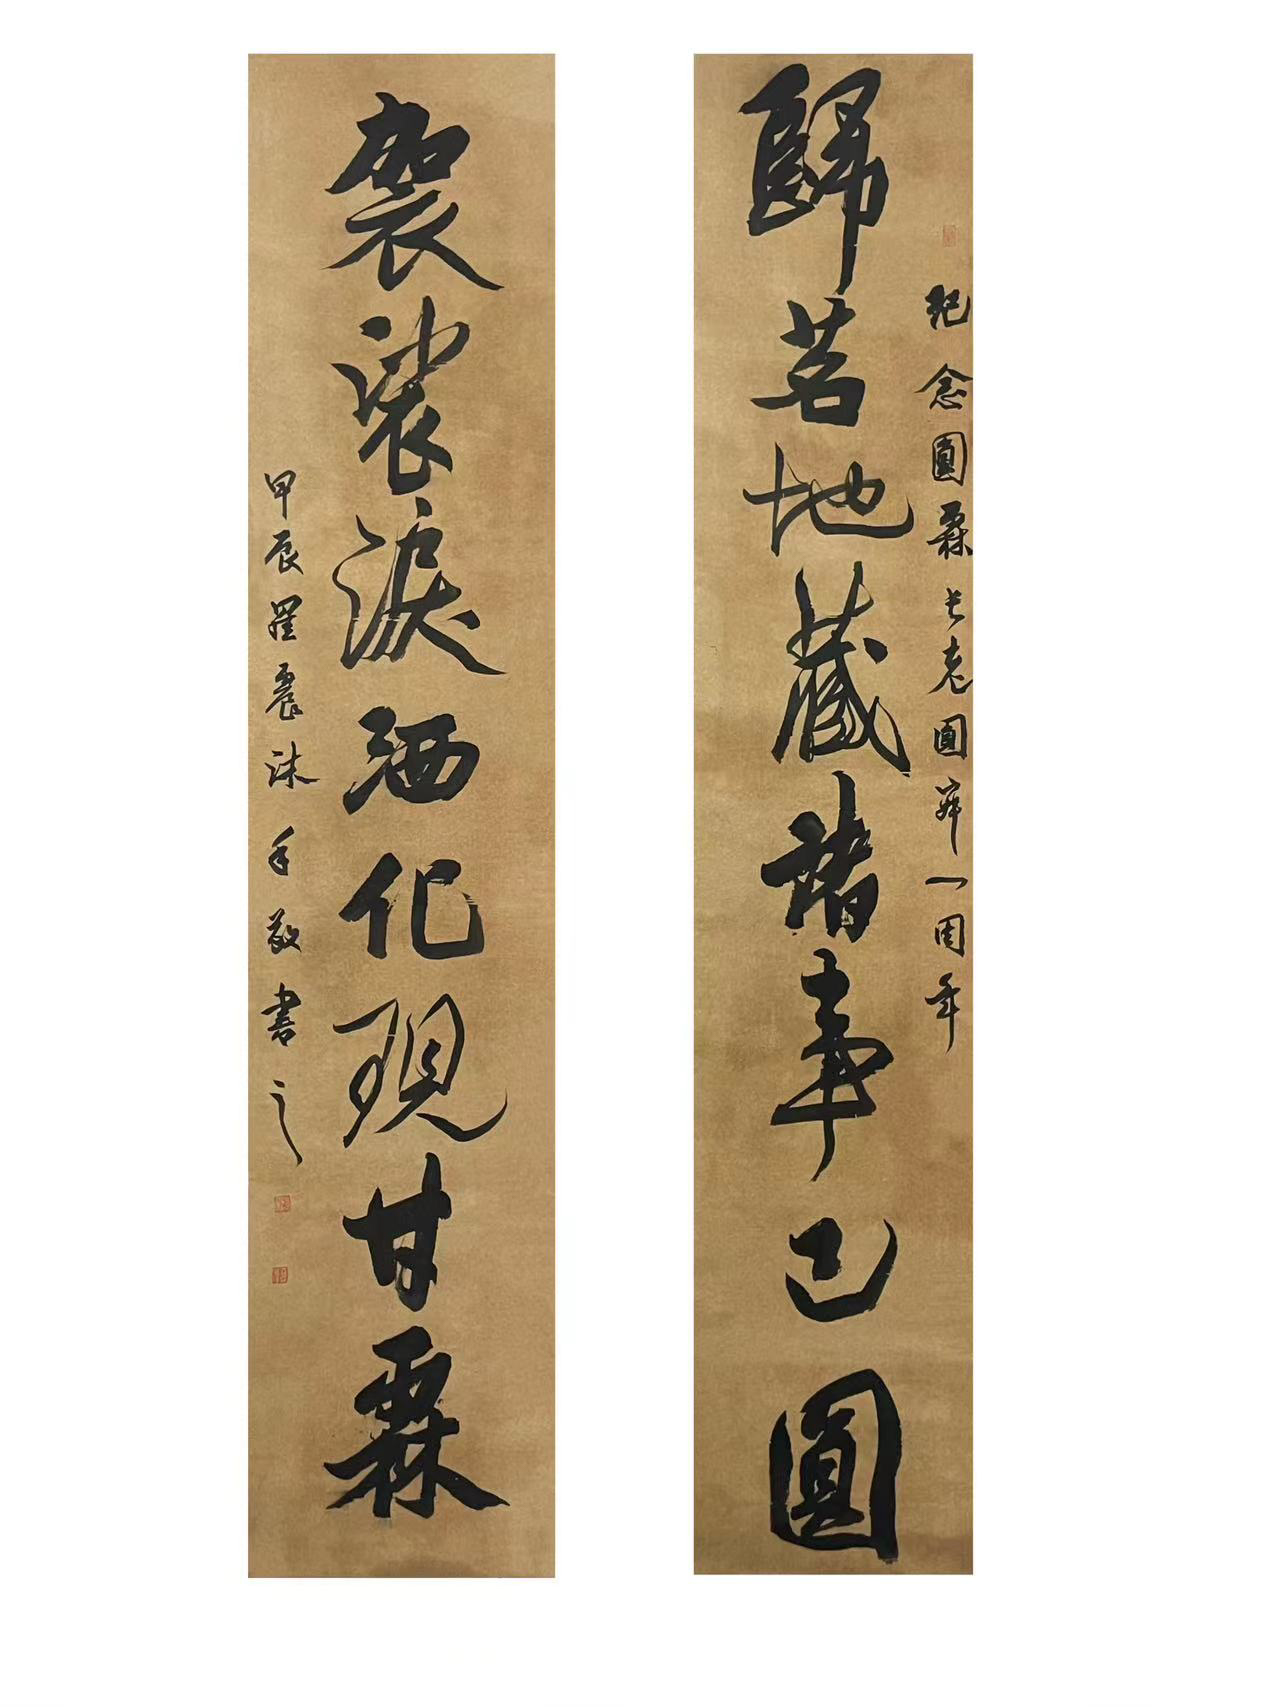 紀念圓霖长老圓寂一周年
歸茗地藏諸事已圓
袈裟淚洒化現甘霖
甲辰羅震沐手敬書之